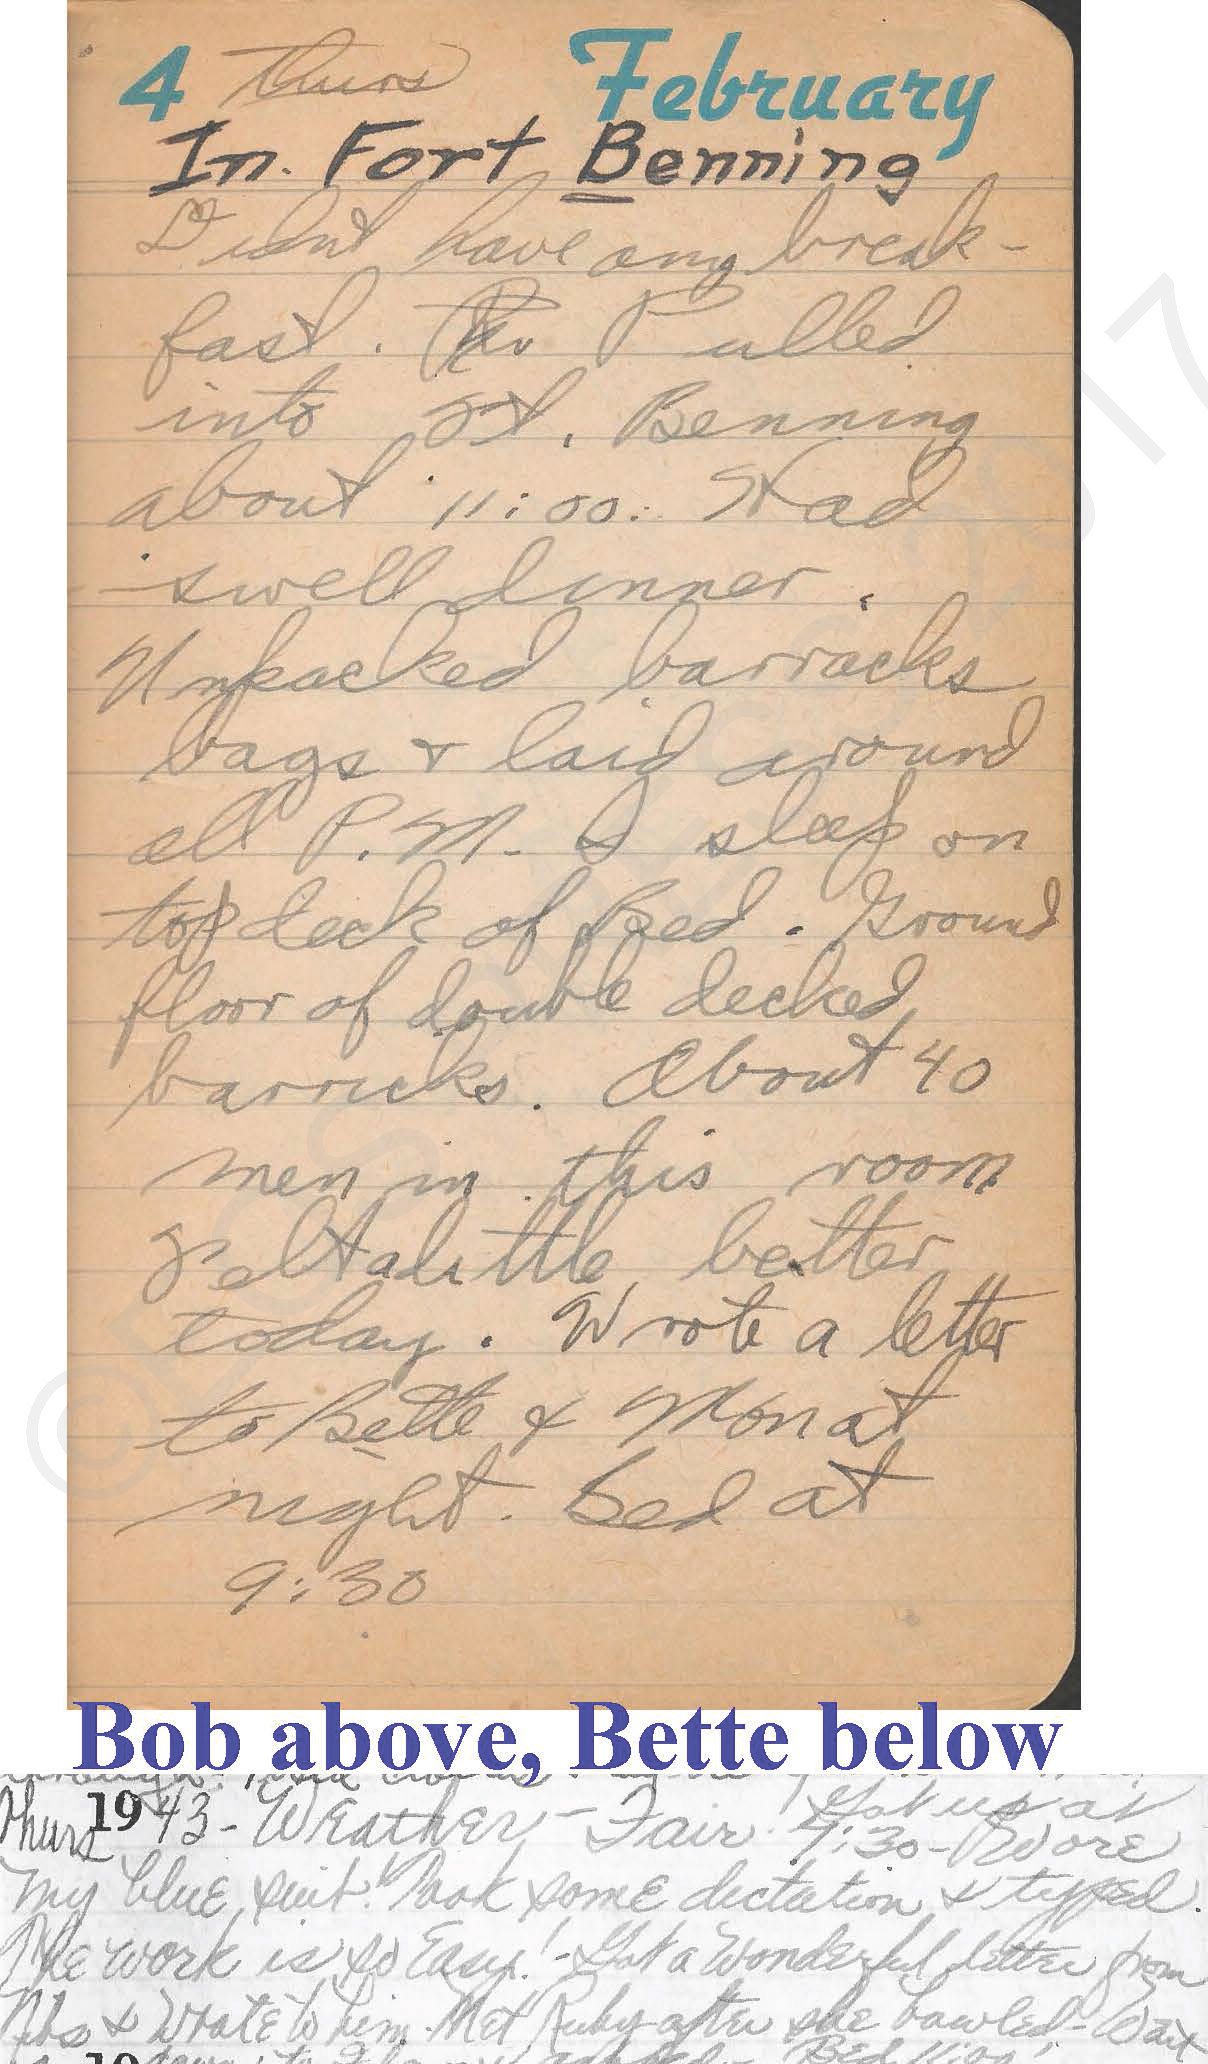 4 Thurs February
In. Fort Benning
Didnt have any break-
fast. Pulled
into Ft. Benning
about 11:00. Had
swell dinner.
Unpacked barracks
bags & laid around
all P.M. I sleep on
top deck of Bed. Ground
floor of double decked
barricks. About 40
men in this room
Felt a little better
today. Wrote a letter
to Bette & Mon at
night. Bed at
9:30
Bob above, Bette below
Thurs 1943 - Weather - Fair. Got up at
7:30 - Wore
my blue suit. Took some dictation & typed.
The work is so Easy! - Got a wonderful letter from
& Wrote to him. Met Ruby after she bowled -
19 Bed 11:00
©EGS 2017